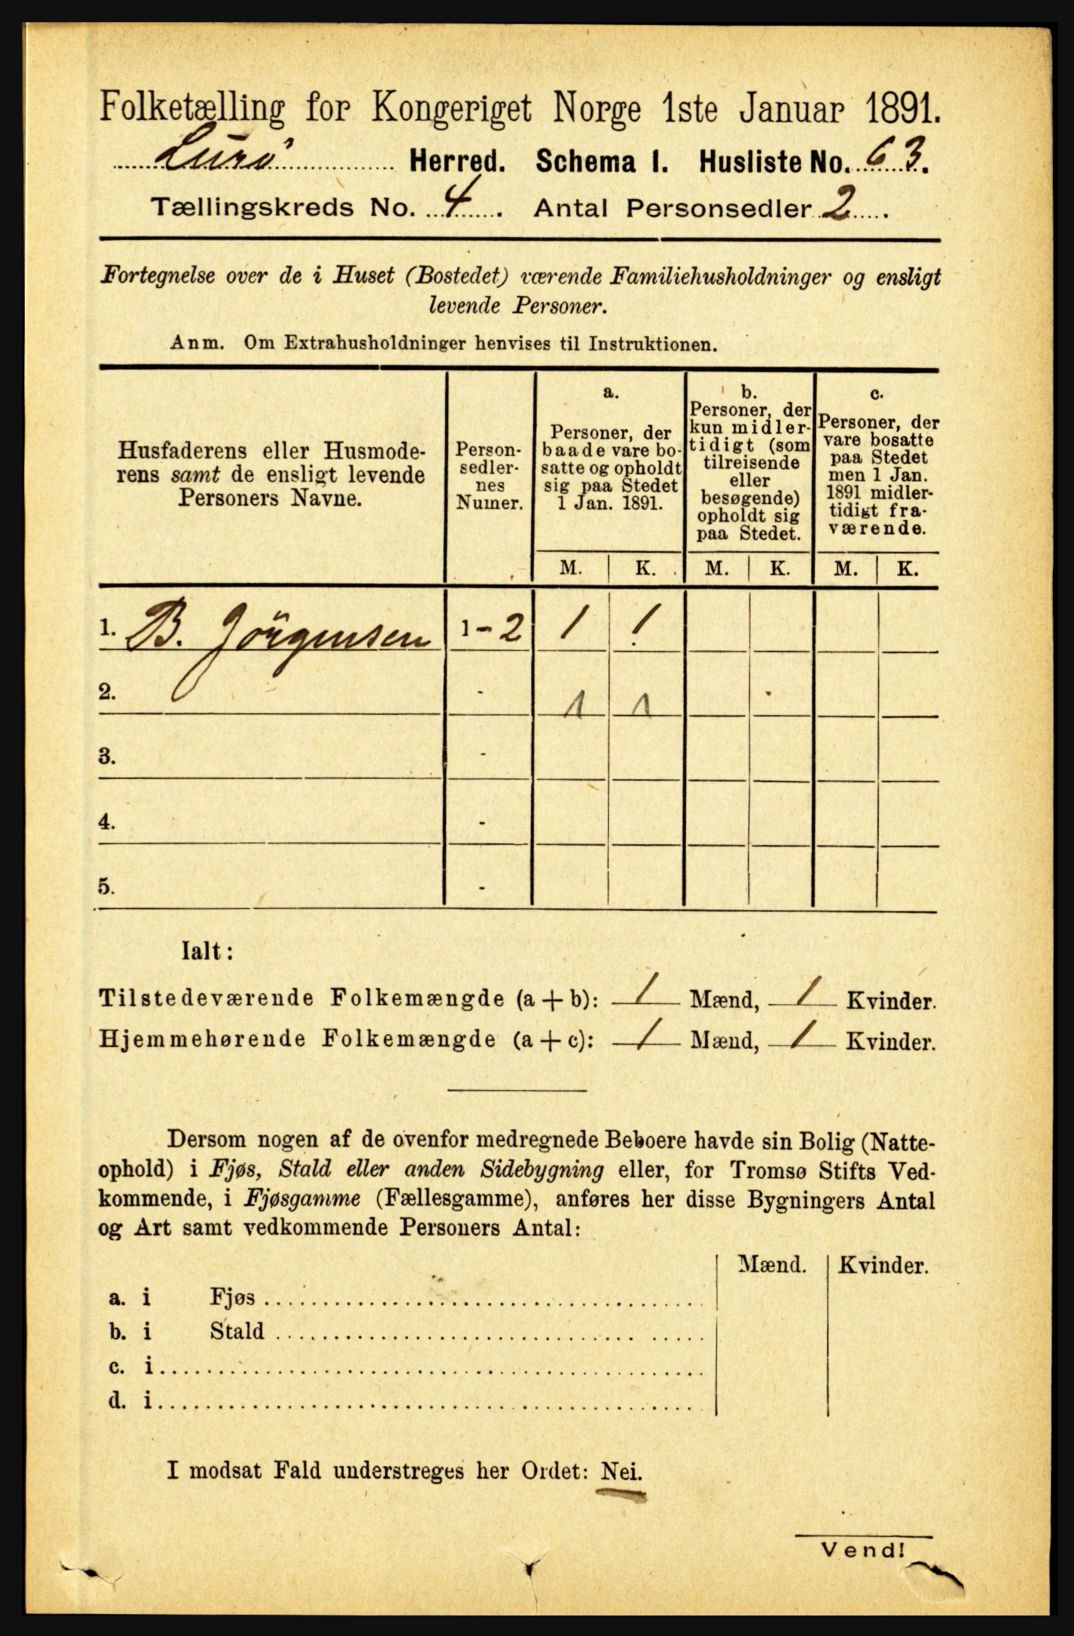 Folketælling for Kongeriget Norge 1ste Januar 1891.
Lurø Herred. Schema I. Husliste No. 63.
Tællingskreds No. 4. Antal Personsedler 2.
Fortegnelse over de i Huset (Bostedet) værende Familiehusholdninger og ensligt
levende Personer.
Anm. Om Extrahusholdninger henvises til Instruktionen.
Husfaderens eller Husmode-
rens samt de ensligt levende
Personers Navne.
Person-
sedler-
nes
Numer.
a.
Personer, der
baade vare bo-
satte og opholdt
sig paa Stedet
1 Jan. 1891.
b.
Personer, der
kun midler-
tidigt (som
tilreisende
eller
besøgende)
opholdt sig
paa Stedet.
c.
Personer, der
vare bosatte
paa Stedet
men 1 Jan.
1891 midler-
tidigt fra-
værende.
M. K. M. K. M. K.
1. B. Jörgensen 1-2 1 1
2. - 1 1
3. -
4. -
5. -
Ialt:
Tilstedeværende Folkemængde (a + b): 1 Mænd, 1 Kvinder.
Hjemmehørende Folkemængde (a + c): 1 Mænd, 1 Kvinder.
Dersom nogen af de ovenfor medregnede Beboere havde sin Bolig (Natte-
ophold) i Fjøs, Stald eller anden Sidebygning eller, for Tromsø Stifts Ved-
kommende, i Fjøsgamme (Fællesgamme), anføres her disse Bygningers Antal
og Art samt vedkommende Personers Antal:
Mænd. Kvinder.
a. i Fjøs
b. i Stald
c. i
d. i
I modsat Fald understreges her Ordet: Nei.
Vend!